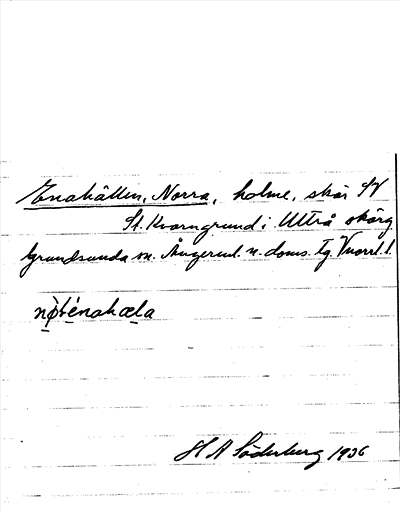 Enahällen, Norra, holme, skär SV
St. Kvarngrund i Ultrå skärg.
Grundsunda sn. Ångerml. n. doms. tg. Vnorrl. l.
nø̀rténahæla
H A Söderberg 1936